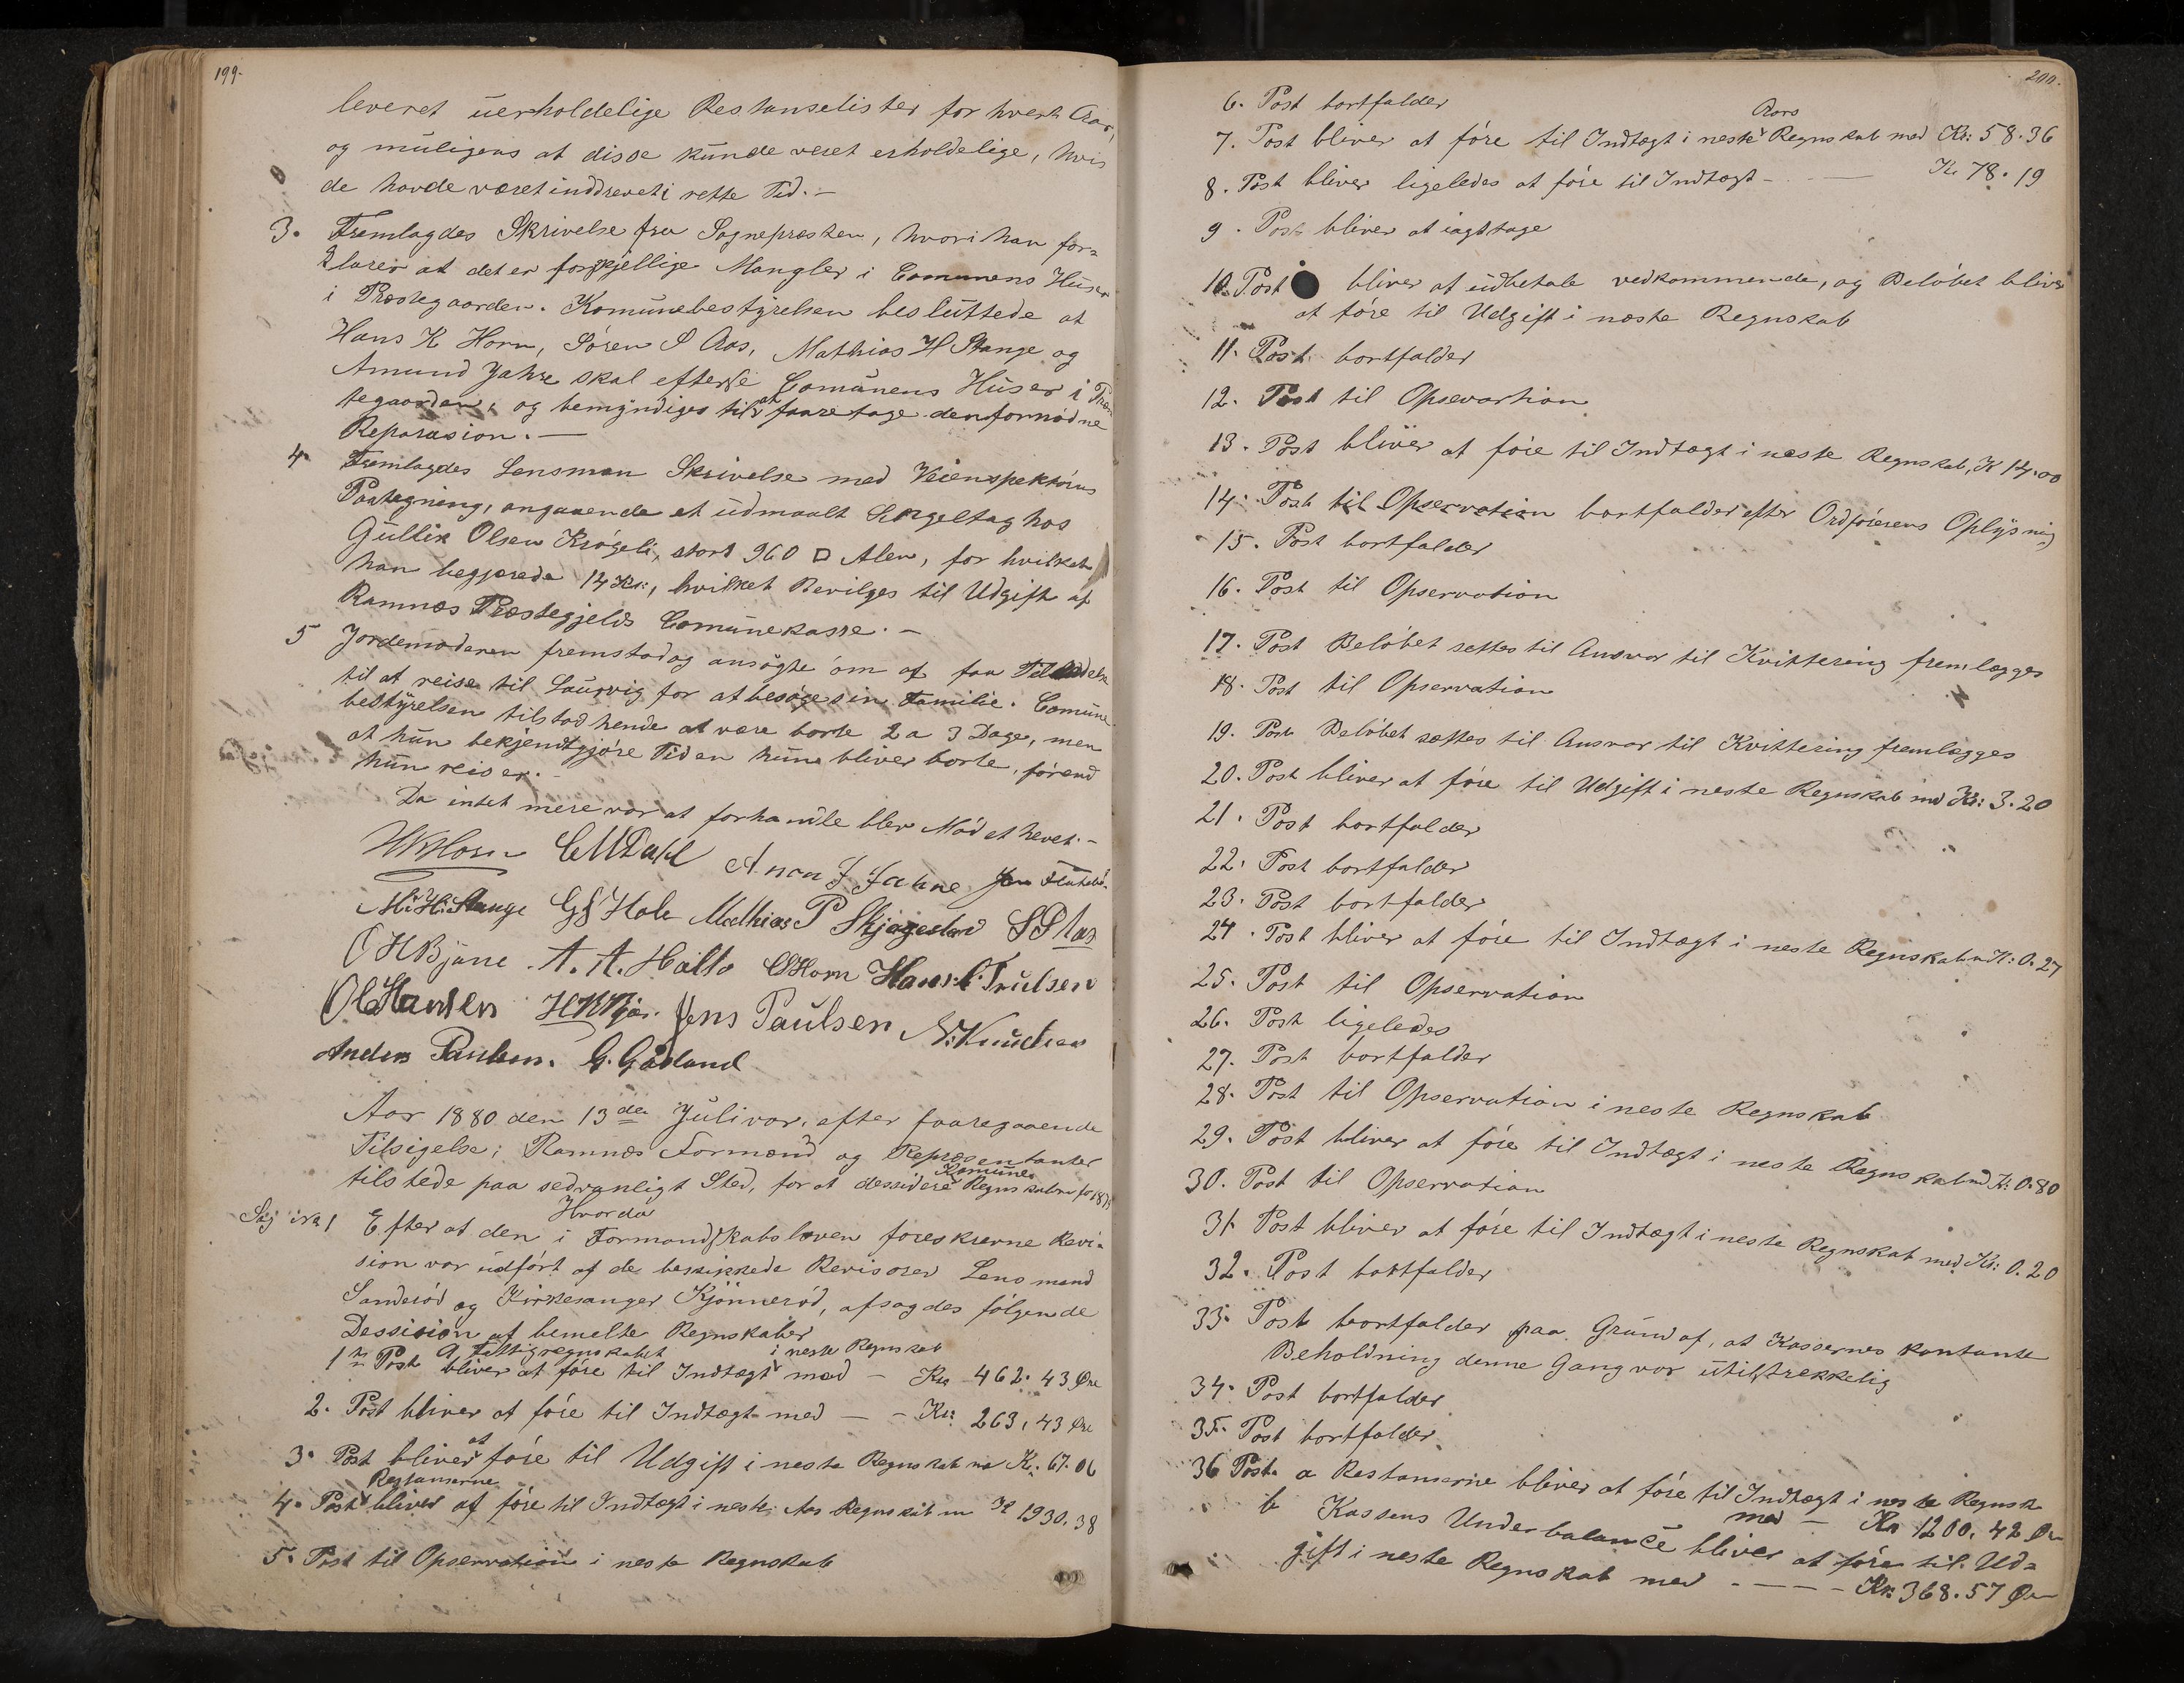 199.
leveret uerholdelige Restanselister for hvert Aar,
og muligens at disse kunde veret erholdelige, hvis
de havde været inddrevet i rette Tid. -
3. Fremlagdes Skrivelse fra Sognepræsten, hvori han for=
klarer at det er forskjellige Mangler i Comunens Huser
i Præstegaarden. Komunebestyrelsen besluttede at
Hans K Horn, Sören S Aas, Mathias H Stange og
Amund Jahre skal efterse Comunens Huser i Præs
tegaarden, og bemyndiges til at faaretage den fornødne
Reparasion. -
4. Fremlagdes Lensman Skrivelse med Veienspektörens
Paategning, angaaende et udmaalt Singeltag hos
Gullik Olsen Krögeli, stort 960 □ Alen, for hvilket
han begjærede 14 Kr:, hvilket Bevilges til Udgift af
Ramnæs Præstegjelds Comunekasse. -
5 Jordemoderen fremstod og ansögte om at faa Tilladelse
til at reise til Laurvig for at besöge sin Familie. Comune
bestyrelsen tilstod hende at være borte 2 a 3 Dage, men
at hun bekjendtgjöre Tiden hun bliver borte, förend
hun reiser. -
Da intet mere var at forhandle blev Mödet hevet. -
HKHorn CMDahl A J Jahre
M. H. Stange G Hole Mathias P Skjægestad SSAas
OHBjune. A. A. Holto OHorn Hans C. Trulsen
OCHansen Jens Paulsen N. Knudsen
Anders Paulsen. G. Gåsland
Aar 1880 den 13de Juli var, efter faaregaaende
Tilsigelse; Ramnæs Formænd og Repræsentanter
tilstede paa sedvanligt Sted, for at dessidere Komune Regnskabene for 1878
Sag No 1 Efter at den i Formandskabsloven foreskrevne Revi=
sion var udfört af de beskikkede Revisorer Lensmand
Sanderöd og Kirkesanger Kjönneröd, afsagdes fölgende
Dessision af bemelte Regnskaber
A, Fattigregnskabet
1ste Post bliver at före til Indtægt i neste Regnskab med - Kr 462. 43 Øre
2. Post bliver at före til Indtægt med - - Kr: 263, 43 Øre
3. Post bliver at före til Udgift i neste Regnskab m Kr. 67. 06
4. Post Restanserne bliver at före til Indtægt i neste Aars Regnskab m Kr 1930. 38
5. Post til Opservation i neste Regnskab
200.
6. Post bortfalder
7. Post bliver at före til Indtægt i neste Aars Regnskab med Kr: 58. 36
8. Post bliver ligeledes at före til Indtægt - — K. 78. 19
9. Post bliver at iagttage
10. Post bliver at udbetale vedkommende, og Belöbet bliver
at före til Udgift i næste Regnskab
11. Post bortfalder
12. Post til Opsevartion
13. Post bliver at före til Indtægt i næste Regnskab, K 14.00
14. Post til Opservation bortfalder efter Ordförerens Oplysning
15. Post bortfalder
16. Post til Opservation
17. Post Belöbet settes til Ansvar til Kvittering fremlægges
18. Post til Opservation
19. Post Belöbet sættes til Ansvar til Kvittering fremlægges
20. Post bliver at före til Udgift i neste Regnskab med Kr: 3. 20
21. Post bortfalder
22. Post bortfalder
23. Post bortfalder
24. Post bliver at före til Indtægt i neste Regnskab m K: 0. 27
25. Post til Opservation
26. Post ligeledes
27. Post bortfalder
28. Post til Opservation i neste Regnskab
29. Post bliver at före til Indtægt i neste Regnskab md K: 0. 80
30. Post til Opservation
31. Post bliver at före til Indtægt i neste Regnskab med Kr: 0. 20
32. Post bortfalder
33. Post bortfalder paa Grund af, at Kassernes kontante
Beholdning denne Gang var utilstrekkelig
34. Post bortfalder
35. Post bortfalder
36 Post. a Restanserne bliver at före til Indtægt i neste Regnsk
med - Kr 1200. 42 Øre
b Kassens Underbalance bliver at före til Ud=
gift i neste Regnskab med - - - - Kr: 368. 57 Øre